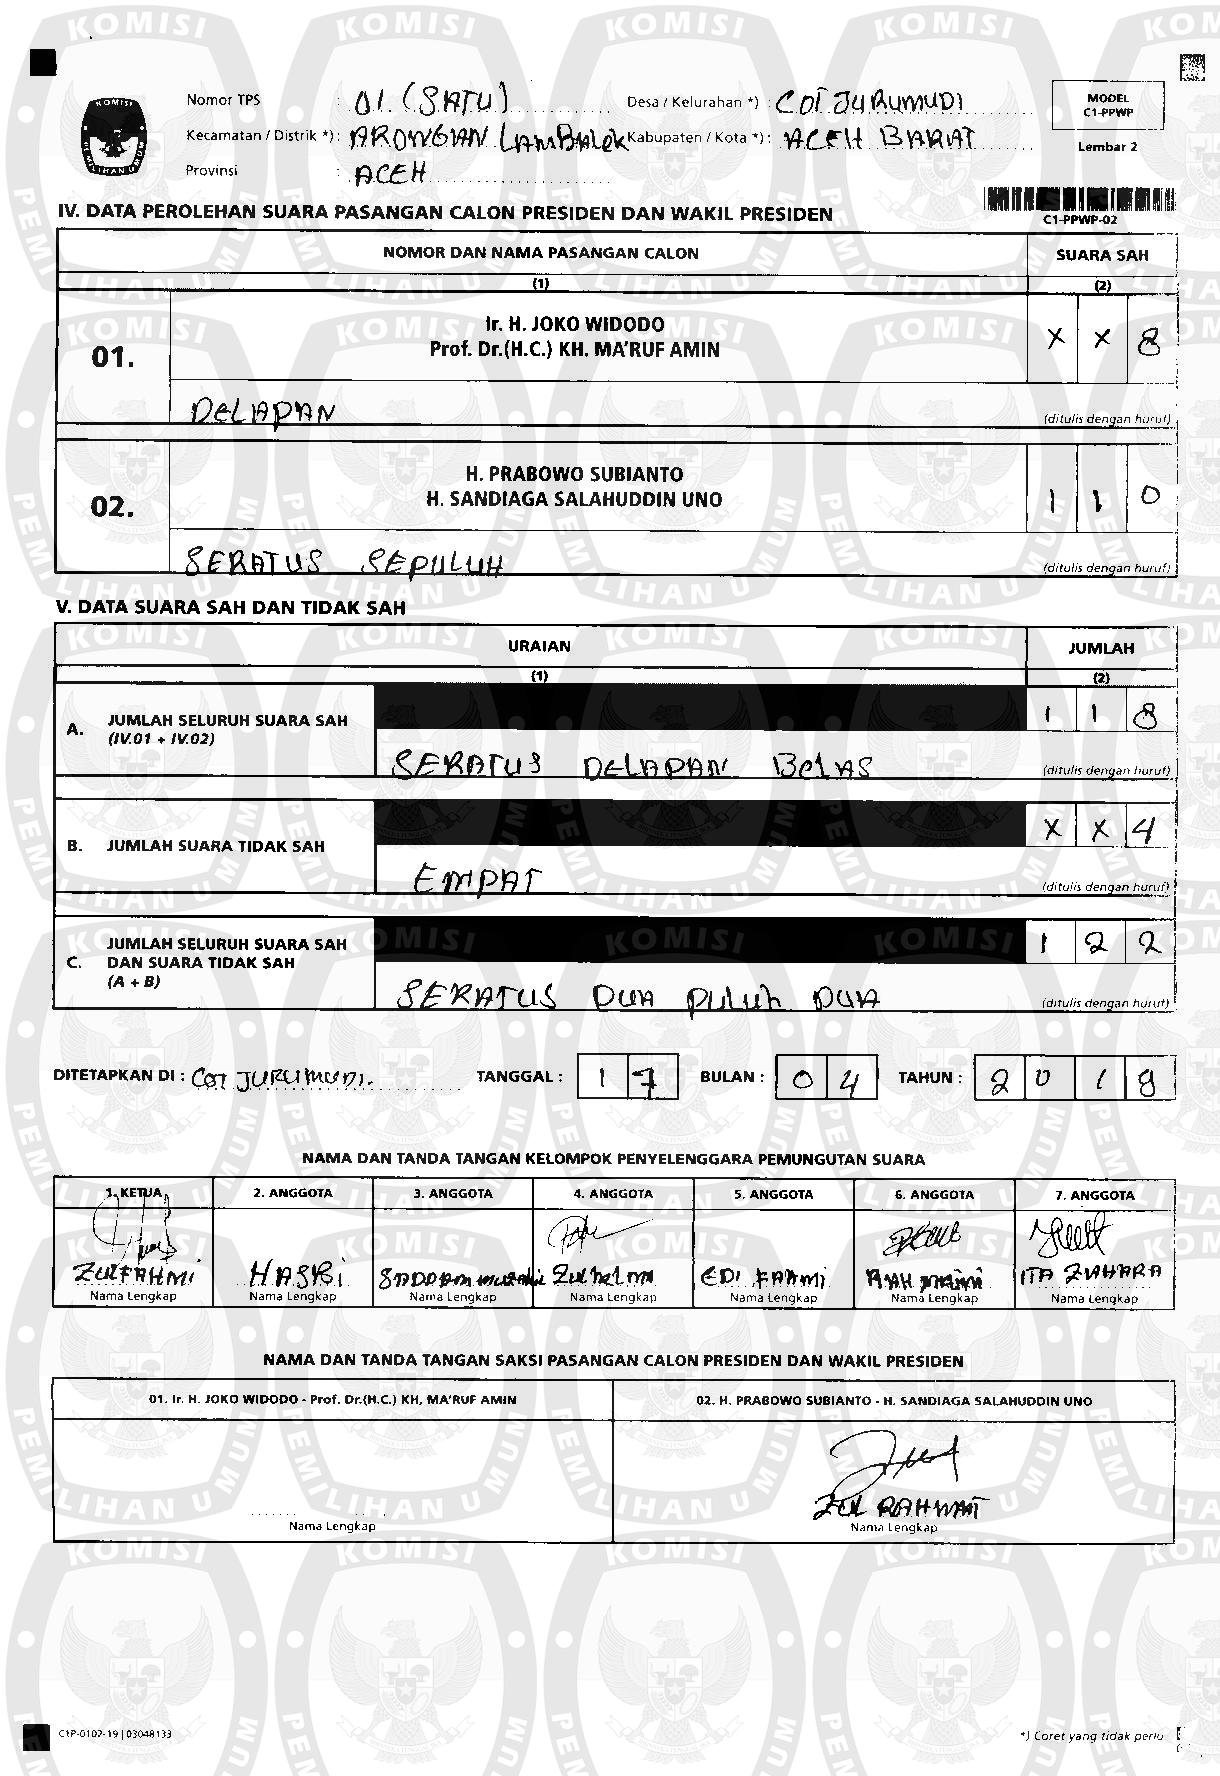 Nomor TPS : 01. (SATU) Desa / Kelurahan *) : COT JURUMUDI
MODEL
C1-PPWP
Kecamatan / Distrik *) : ARONGAN LAMBALEK Kabupaten / Kota *) : ACEH BARAT
Lembar 2
Provinsi : ACEH
IV. DATA PEROLEHAN SUARA PASANGAN CALON PRESIDEN DAN WAKIL PRESIDEN
C1-PPWP-02
NOMOR DAN NAMA PASANGAN CALON SUARA SAH
(1) (2)
01. Ir. H. JOKO WIDODO
Prof. Dr.(H.C.) KH. MA'RUF AMIN X X 8
DELAPAN (ditulis dengan huruf)
02. H. PRABOWO SUBIANTO
H. SANDIAGA SALAHUDDIN UNO 1 1 0
SERATUS SEPULUH (ditulis dengan huruf)
V. DATA SUARA SAH DAN TIDAK SAH
URAIAN JUMLAH
(1) (2)
A. JUMLAH SELURUH SUARA SAH
(IV.01 + IV.02) 1 1 8
SERATUS DELAPAN BELAS (ditulis dengan huruf)
B. JUMLAH SUARA TIDAK SAH X X 4
EMPAT (ditulis dengan huruf)
C. JUMLAH SELURUH SUARA SAH
DAN SUARA TIDAK SAH
(A + B) 1 2 2
SERATUS DUA PULUH DUA (ditulis dengan huruf)
DITETAPKAN DI : COT JURUMUDI. TANGGAL : 1 7 BULAN : 0 4 TAHUN : 2 0 1 9
NAMA DAN TANDA TANGAN KELOMPOK PENYELENGGARA PEMUNGUTAN SUARA
1. KETUA 2. ANGGOTA 3. ANGGOTA 4. ANGGOTA 5. ANGGOTA 6. ANGGOTA 7. ANGGOTA
ZULFAHMI HASBI SADDAM EDI FAHMI ITA ZUHARA
Nama Lengkap Nama Lengkap Nama Lengkap Nama Lengkap Nama Lengkap Nama Lengkap Nama Lengkap
NAMA DAN TANDA TANGAN SAKSI PASANGAN CALON PRESIDEN DAN WAKIL PRESIDEN
01. Ir. H. JOKO WIDODO - Prof. Dr.(H.C.) KH. MA'RUF AMIN 02. H. PRABOWO SUBIANTO - H. SANDIAGA SALAHUDDIN UNO
ZUL RAHMAT
Nama Lengkap Nama Lengkap
C1P-0102-19 | 03048133 *) Coret yang tidak perlu